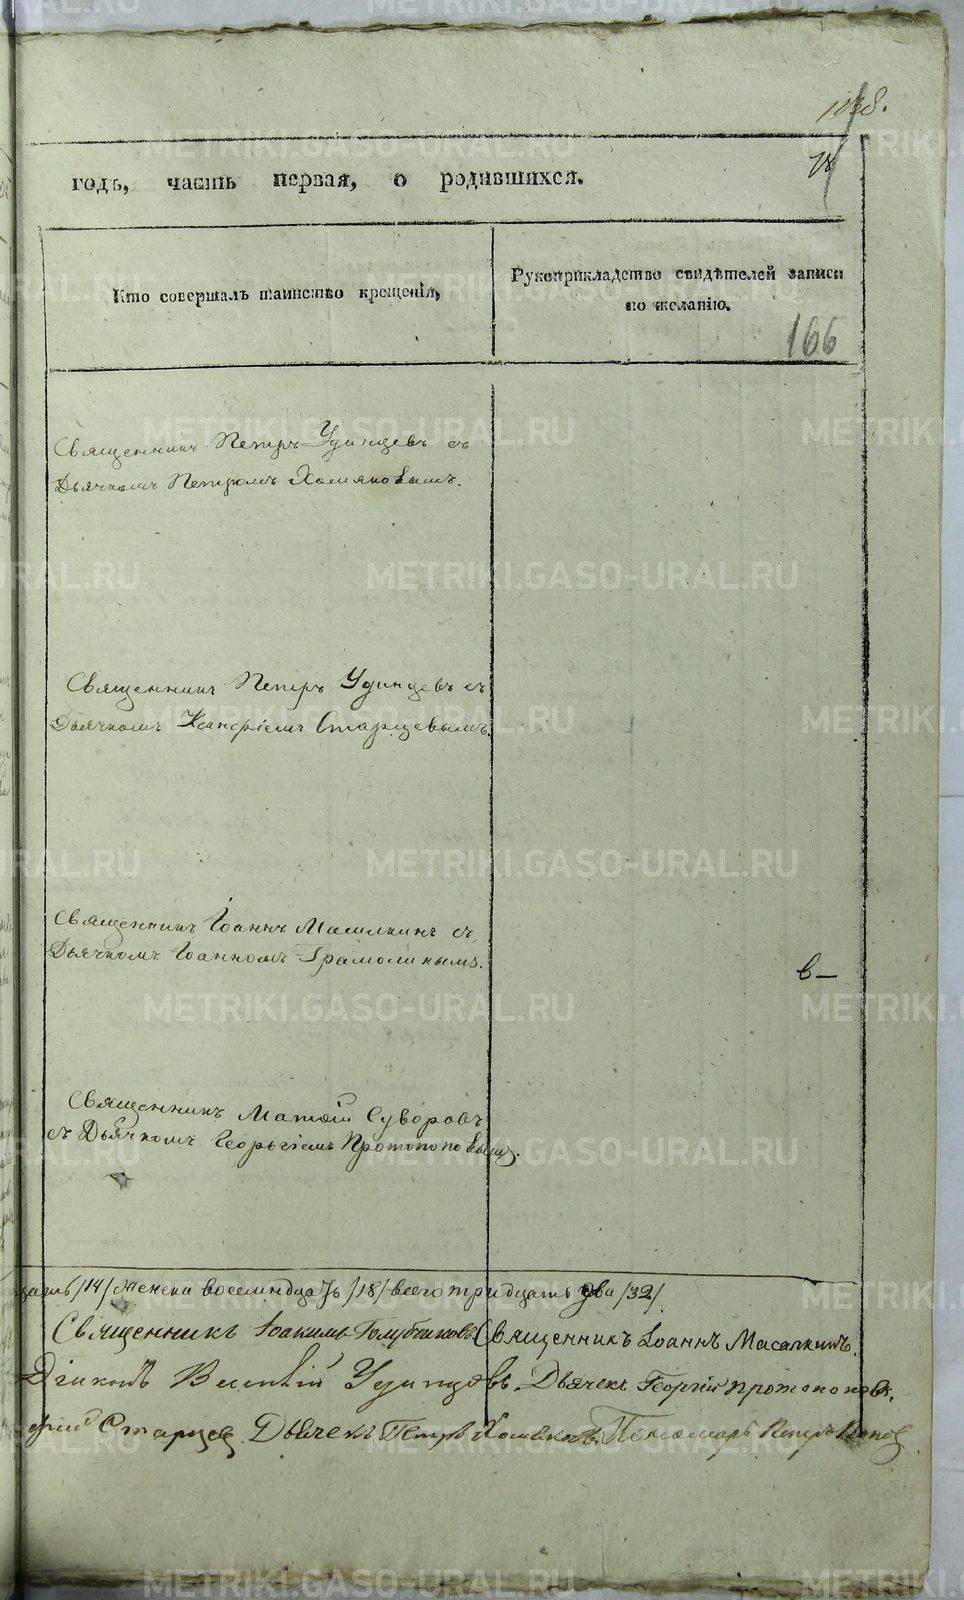 1038.
78
годъ, часть первая, о родившихся.
Кто совершалъ таинство крещенія,
Рукоприкладство свидѣтелей записи
по желанію.
166
Священникъ Петръ Удинцевъ съ
Дьячкомъ Петромъ Хомяковымъ.
Священникъ Петръ Удинцевъ съ
Дьячкомъ Старцевымъ.
Священникъ Іоаннъ Масалкинъ съ
Дьячкомъ Іоанномъ Грамолинымъ.
в—
Священникъ Матѳій Суворовъ
съ Дьячкомъ Георгіемъ Протопоповымъ.
цать /14/ женска восемнадцать /18/ всего тридцать два /32/
Священникъ Іоакимъ Голубчиковъ Священникъ Іоаннъ Масалкинъ.
Діаконъ Василій Удинцовъ. Дьячекъ Георгій Протопоповъ.
Старцев Дьячекъ Петръ Хомяковъ. Пономарь Петръ Попов
METRIKI.GASO-URAL.RU